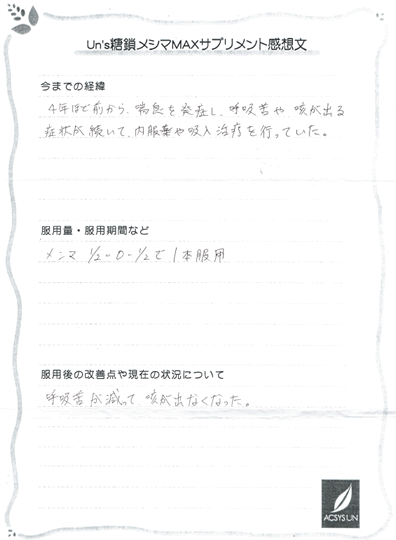 Un's糖鎖メシマMAXサプリメント感想文
今までの経緯
4年ほど前から、喘息を発症し、呼吸苦や、咳が出る
症状が続いて、内服薬や吸入治療を行っていた。
服用量・服用期間など
メシマ 1/2-0-1/2で1本服用
服用後の改善点や現在の状況について
呼吸苦が減って咳が出なくなった。
ACSYS UN